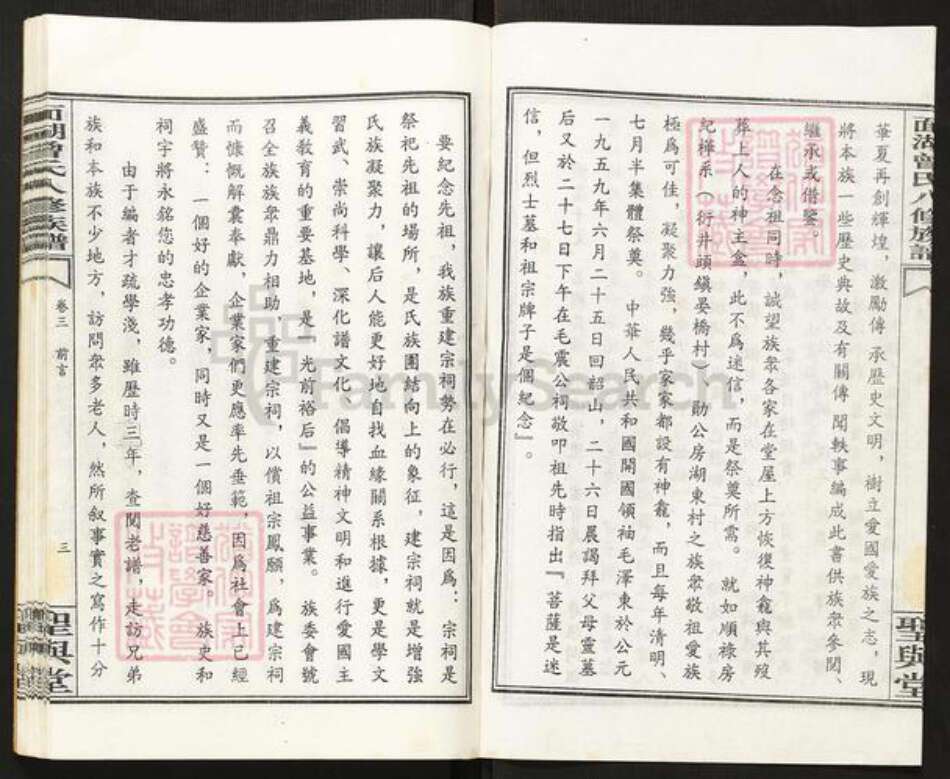 面湖曾氏八修族譜
華夏再創輝煌，激勵傳承歷史文明，樹立愛國愛族之志，現
將本族一些歷史典故及有關傳聞軼事編成此書供族衆參閱、
繼承或借鑒。
在念祖同時，誠望族衆各家在堂屋上方恢復神龕與其殁
葬上人的神主盒，此不爲迷信，而是祭奠所需。就如順祿房
紀樺系（衍井頭鎮晏橋村）、勛公房湖東村之族衆敬祖愛族
極爲可佳，凝聚力強，幾乎家家都設有神龕，而且每年清明、
七月半集體祭奠。中華人民共和國開國領袖毛澤東於公元
一九五九年六月二十五日回韶山，二十六日晨謁拜父母靈墓
后又於二十七日下午在毛震公祠敬叩祖先時指出『菩薩是迷
信，但烈士墓和祖宗牌子是個紀念』。
聖與堂
要紀念先祖，我族重建宗祠勢在必行，這是因爲：宗祠是
祭祀先祖的場所，是氏族團結向上的象征，建宗祠就是增強
氏族凝聚力，讓后人能更好地自找血緣關系根據，更是學文
習武、崇尚科學、深化譜文化、倡導精神文明和進行愛國主
義教育的重要基地，是『光前裕后』的公益事業。族委會號
召全族族衆鼎力相助，重建宗祠，以償祖宗夙願，爲建宗祠
而慷慨解囊奉獻，企業家們更應率先垂範，因爲社會上已經
盛贊：一個好的企業家，同時又是一個好慈善家。族史和
祠宇將永銘您的忠孝功德。
由于編者才疏學淺，雖歷時三年，查閱老譜，走訪兄弟
族和本族不少地方，訪問衆多老人，然所叙事實之寫作十分
面湖曾氏八修族譜
卷三 前言
三
聖與堂
FamilySearch